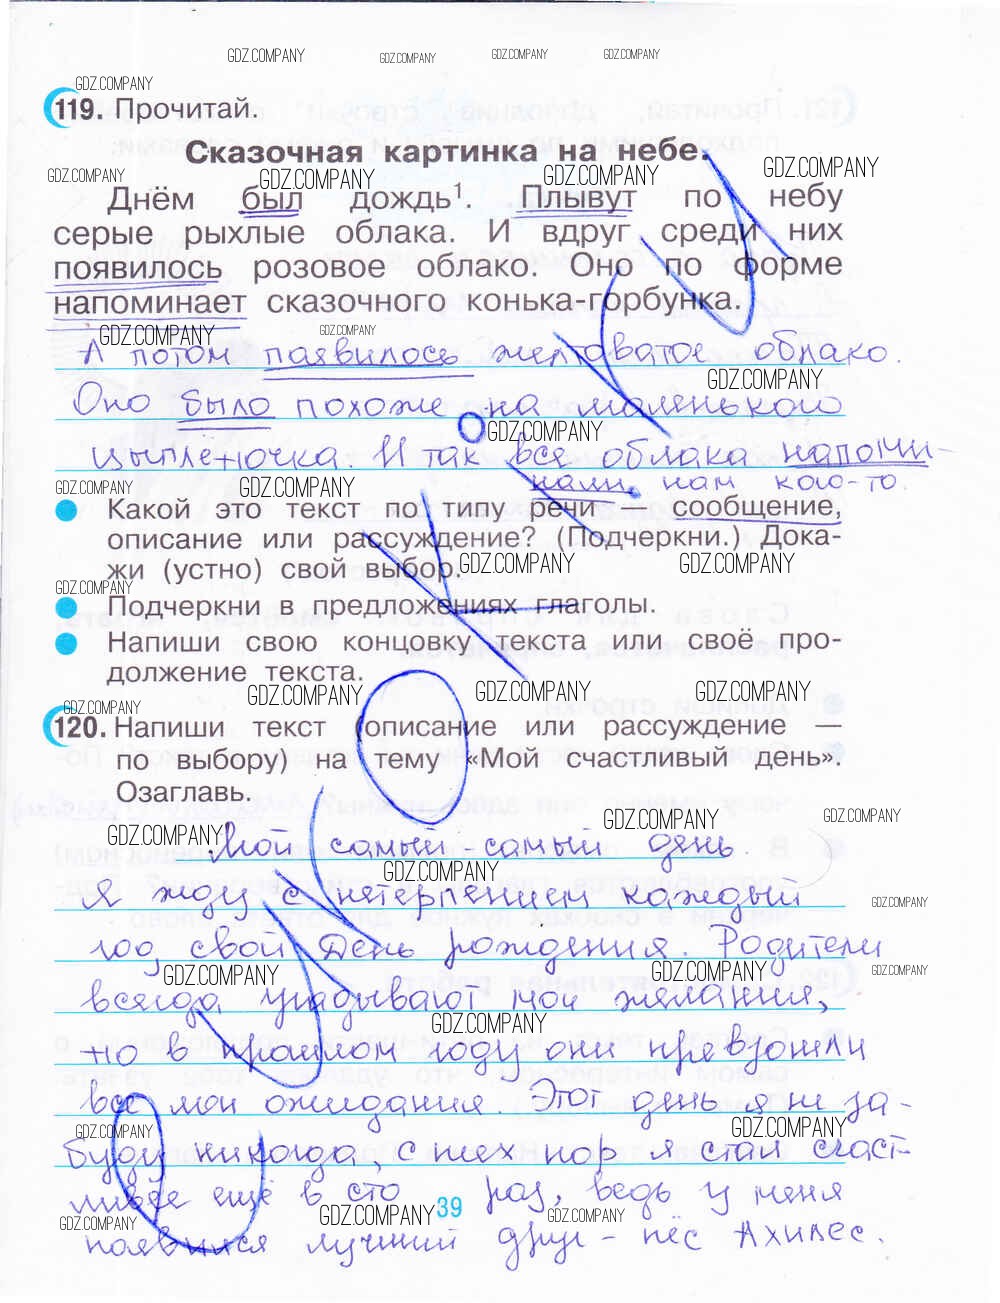 GDZ.COMPANY GDZ.COMPANY GDZ.COMPANY GDZ.COMPANY
GDZ.COMPANY
119. Прочитай.
Сказочная картинка на небе.
GDZ.COMPANY GDZ.COMPANY GDZ.COMPANY GDZ.COMPANY
Днём был дождь¹. Плывут по небу
серые рыхлые облака. И вдруг среди них
появилось розовое облако. Оно по форме
напоминает сказочного конька-горбунка.
GDZ.COMPANY GDZ.COMPANY
А потом появилось желтоватое облако.
GDZ.COMPANY
Оно было похоже на маленького
GDZ.COMPANY
цыплёночка. И так все облака напоми-
нали нам кого-то.
GDZ.COMPANY GDZ.COMPANY
Какой это текст по типу речи — сообщение,
описание или рассуждение? (Подчеркни.) Дока-
жи (устно) свой выбор.
GDZ.COMPANY GDZ.COMPANY
GDZ.COMPANY
Подчеркни в предложениях глаголы.
Напиши свою концовку текста или своё про-
должение текста.
GDZ.COMPANY GDZ.COMPANY GDZ.COMPANY
GDZ.COMPANY
120. Напиши текст (описание или рассуждение —
по выбору) на тему «Мой счастливый день».
Озаглавь.
GDZ.COMPANY GDZ.COMPANY GDZ.COMPANY
Мой самый-самый день
GDZ.COMPANY
Я жду с нетерпением каждый
GDZ.COMPANY
год свой День рождения. Родители
GDZ.COMPANY GDZ.COMPANY GDZ.COMPANY
всегда угадывают мои желания,
GDZ.COMPANY
но в прошлом году они превзошли
все мои ожидания. Этот день я не за-
GDZ.COMPANY GDZ.COMPANY
буду никогда, с тех пор я стал счаст-
ливее ещё в сто раз, ведь у меня
GDZ.COMPANY GDZ.COMPANY 39 GDZ.COMPANY
появился лучший друг - пёс Ахилес.